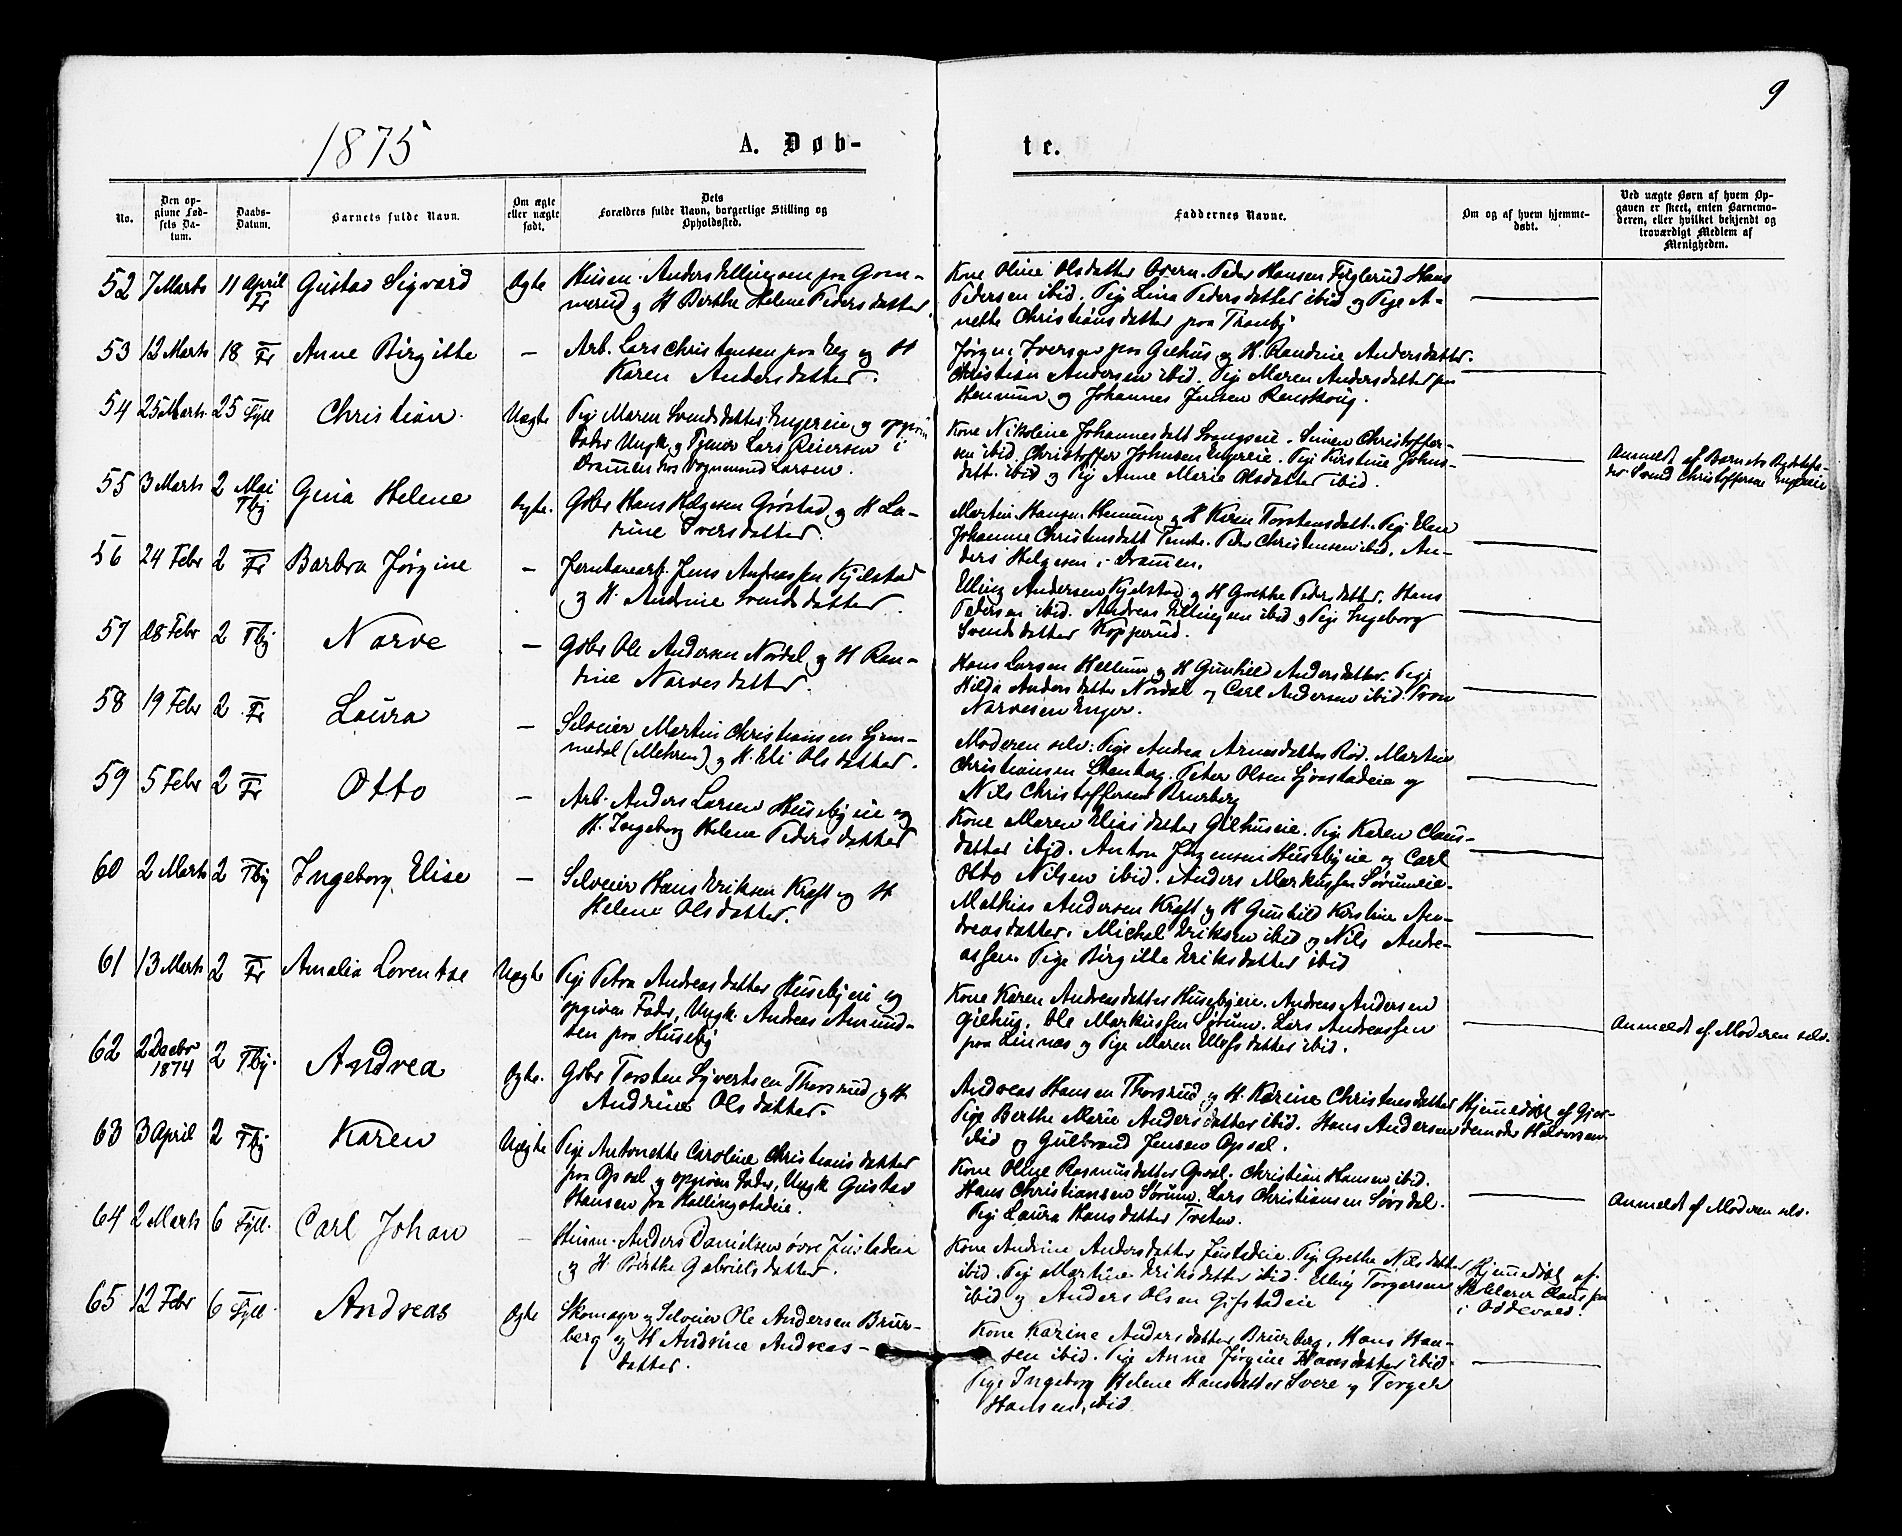 9
1875
A. Døb-
te.
No.
Den op-
givne Fød-
sels Da-
tum.
Daabs-
Datum.
Barnets fulde Navn.
Om ægte
eller uægte
født.
Dets
Forældres fulde Navn, borgerlige Stilling og
Opholdssted.
Faddernes Navne.
Om og af hvem hjemme-
døbt.
Ved uægte Børn af hvem Op-
gaven er skeet, enten Barnemo-
deren, eller hvilket bekjendt og
troværdigt Medlem af
Menigheden.
52 7 Marts 11 April Fr Gustav Sigvard Ægte
Husm. Anders Ellingsen paa Gom-
nerud og H Berthe Helene Pedersdatter.
Kone Oline Olsdatter Overn. Peder Hansen Fuglerud Hans
Pedersen ibid. Pige Lina Pedersdatter ibid og Pige A-
nette Christiansdatter paa Tranby
53 12 Marts 18 Fr Anne Birgitte —
Arb. Lars Christensen paa Eeg og H
Karen Andersdatter.
Jørgen Iversen paa Gilhus og H. Randine Andersdatter.
Christian Andersen ibid. Pige Maren Andersdatter paa
Hennum og Johannes Jensen Renskoug.
54 25 Marts 25 Fyll Christian Uægte
Pige Maren Svendsdatter Engereie og opgiven
Fader Ungk. og Tjener Lars Reiersen i
Dramen hos Vognmand Larsen.
Kone Nikoline Johannesdatt Svangseie. Simen Christoffer-
sen ibid. Christoffer Johnsen Engereie. Pige Kirstine Johns-
datt. ibid og Pige Anne Marie Olsdatter ibid.
Anmeldt af Barnets Bedstefa-
der Svend Christoffersen Engereie
55 3 Marts 2 Mai Tbg Gina Helene Ægte.
Gdbr Hans Helgesen Grøstad og H La-
rine Iversdatter.
Martin Hansen Hennum og H Karen Torstensdatt. Pige Elen
Johanne Christensdatt Tveite. Peder Christensen ibid. An-
ders Helgesen i Dramen.
56 24 Febr 2 Fr Barbra Jørgine —
Jernbanearb. Jens Andreassen Kjelstad
og H. Andrine Svendsdatter.
Elling Andersen Kjelstad og H Grethe Pedersdatter. Hans
Pedersen ibid. Andreas Ellingsen ibid og Pige Ingeborg
Svendsdatter Kopperud.
57 28 Febr 2 Tbg Narve —
Gdbr Ole Andersen Nordal og H Ran-
dine Narvesdatter.
Hans Larsen Hellum og H Gunhild Andersdatter. Pige
Hilda Andersdatter Nordal og Carl Andersen ibid. Iver
Narvesen Enger.
58 19 Febr 2 Fr Laura —
Selveier Martin Christiansen
medal (Mehren) og H. Eli Olsdatter.
Moderen selv. Pige Andrea Arnesdatter Rød. Martin
Christiansen Stenberg. Peter Olsen Gjevstadeie og
Nils Christoffersen Brurberg
59 5 Febr 2 Fr Otto —
Arb. Anders Larsen Husebyeie og
H. Ingeborg Helene Pedersdatter
Kone Maren Eliasdatter Gilhuseie. Pige Karen Claus-
datter ibid. Anton Jørgensen Husebyeie og Carl
Otto Nilsen ibid. Anders Markussen Sørumeie.
60 2 Marts 2 Tbg Ingeborg Elise —
Selveier Hans Eriksen Kraft og H
Helene Olsdatter.
Mathias Andersen Kraft og H Gunhild Kirstine An-
dreasdatter. Michal Eriksen ibid og Nils Andre-
assen. Pige Birgitte Eriksdatter ibid
61 13 Marts 2 Fr Amalia Lorentze Uægte
Pige Petra Andreasdatter Husebyeie og
opgiven Fader, Ungk. Andreas Amund-
sen paa Huseby
Kone Karen Andreasdatter Husebyeie. Andreas Andersen
Gilhus. Ole Markussen Sørum. Lars Andreassen
paa Linnæs og Pige Maren Ulfsdatter ibid.
Anmeldt af Moderen selv.
62 2 Decbr 1874 2 Tbg. Andrea Ægte.
Gdbr Torsten Syvertsen Thorsrud og H
Andrine Olsdatter.
Andreas Hansen Thorsrud og H. Karine Christensdatter
Pige Berthe Marie Andersdatter ibid. Hans Andersen
ibid og Gulbrand Jensen Opsal.
Hjemmedøbt af Gjor-
demoder Halvorsen
63 3 April 2 Tbg Karen Uægte
Pige Antonette Caroline Christiansdatter
paa Opsal og opgiven Fader, Ungk Gustav
Hansen fra Hallingstadeie.
Kone Oline Rasmusdatter Opsal. Christian Hansen ibid.
Hans Christiansen Sørum. Lars Christiansen Sørsdal.
Pige Laura Hansdatter Treten.
Anmeldt af Moderen selv.
64 2 Marts 6 Fyll. Carl Johan —
Husm. Anders Danielsen øvre Justadeie
og H Berthe Gabrielsdatter.
Kone Andrine Andersdatter Justadeie. Pige Grethe Nilsdatter
ibid. Pige Martine Eriksdatter ibid. Elling Torgersen
ibid og Anders Olsen Gifstadeie
Hjemmedøbt af
Sk.lærer Claus paa
i Oddevald.
65 12 Febr 6 Fyll Andreas Ægte
Skomager og Selveier Ole Andersen Brur-
berg og H Andrine Andreas-
datter.
Kone Karine Andersdatter Brurberg. Hans Han-
sen ibid. Pige Anne Jørgine Hansdatter ibid.
Pige Ingeborg Helene Hansdatter Svere og Torger
Hansen, ibid